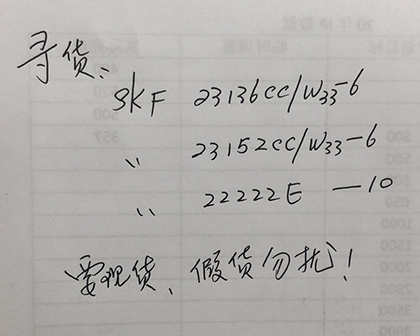 寻货:
SKF 23136CC/W33-6
〃 23152CC/W33-6
〃 22222E —10
要现货、假货勿扰!